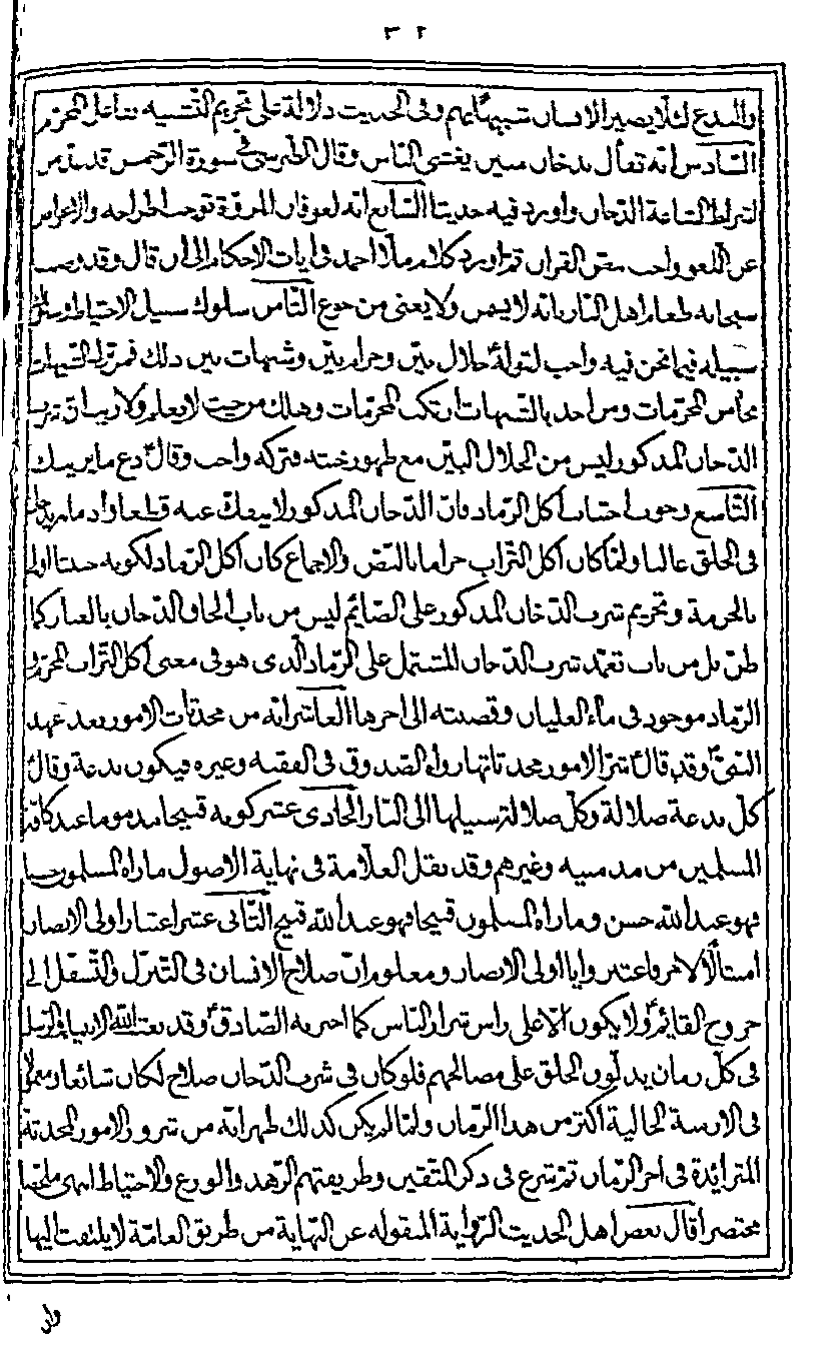 ٣٢
والمبدع لئلا يصير الانسان شبيها بهم وفى الحديث دلالة على تحريم التشبه بفاعل المحرم
السادس انه تعالى بدخان مبين يغشى الناس وقال الطبرسى فى سورة الرحمن قد من
اشراط الساعة الدخان واورد فيه حديثا السابع انه لغو فان المروة توجب اطراحه والاعراض
عن اللغو واجب بنص القران ثم اورد كلام ملا احمد فى ايات الاحكام الى ان قال وقد وصف
سبحانه طعام اهل النار بانه لا يسمن ولا يغنى من جوع الثامن سلوك سبيل الاحتياط وسلوك
سبيله فيما نحن فيه واجب لقوله حلال بيّن وحرام بيّن وشبهات بين ذلك فمن ترك الشبهات
نجا من المحرمات ومن اخذ بالشبهات ارتكب المحرمات وهلك من حيث لا يعلم ولا ريب ان شرب
الدخان المذكور ليس من الحلال البيّن مع ظهور خبثه فتركه واجب وقال دع ما يريبك
التاسع وجوب اجتناب اكل الرماد فان الدخان المذكور لا ينفك عنه قطعا واد ما
فى الحلق غالبا ولما كان اكل التراب حراما بالنص والاجماع كان اكل الرماد لكونه خبثا اولى
بالحرمة وتحريم شرب الدخان المذكور على الصائم ليس من باب الحاق الدخان بالغبار كما
ظن بل من باب تعمد شرب الدخان المشتمل على الرماد الذى هو فى معنى اكل التراب المحرم و
الرماد موجود فى ماء الغليان وقصبته الى اخرها العاشر انه من محدثات الامور بعد عهد
النبى وقد قال شر الامور محدثاتها رواه الصدوق فى الفقيه وغيره فيكون بدعة وقال
كل بدعة ضلالة وكل ضلالة سبيلها الى النار الحادى عشر كونه قبيحا مذموما عند كافة
المسلمين من مدمنيه وغيرهم وقد نقل العلامة فى نهاية الاصول ما راه المسلمون حسنا
فهو عند الله حسن وما راه المسلمون قبيحا فهو عند الله قبيح الثانى عشر اعتبار اولى الابصار
امتثالا لامر فاعتبروا يا اولى الابصار ومعلوم ان صلاح الانسان فى التنزل والتسفل الى
خروج القائم ولا يكون الا على راس شرار الناس كما اخبر به الصادق وقد بعث الله الانبياء والرسل
فى كل زمان يدلون الخلق على مصالحهم فلو كان فى شرب الدخان صلاح لكان شائعا ومعمولا
فى الازمنة الخالية اكثر من هذا الزمان ولما لم يكن كذلك ظهر انه من شرور الامور المحدثة
المتزائدة فى اخر الزمان ثم شرع فى ذكر المتقين وطريقتهم الزهد والورع والاحتياط انتهى ملخصا
مختصرا قال بعض اهل الحديث الرواية المنقوله عن النهاية من طريق العامة لا يلتفت اليها
وان